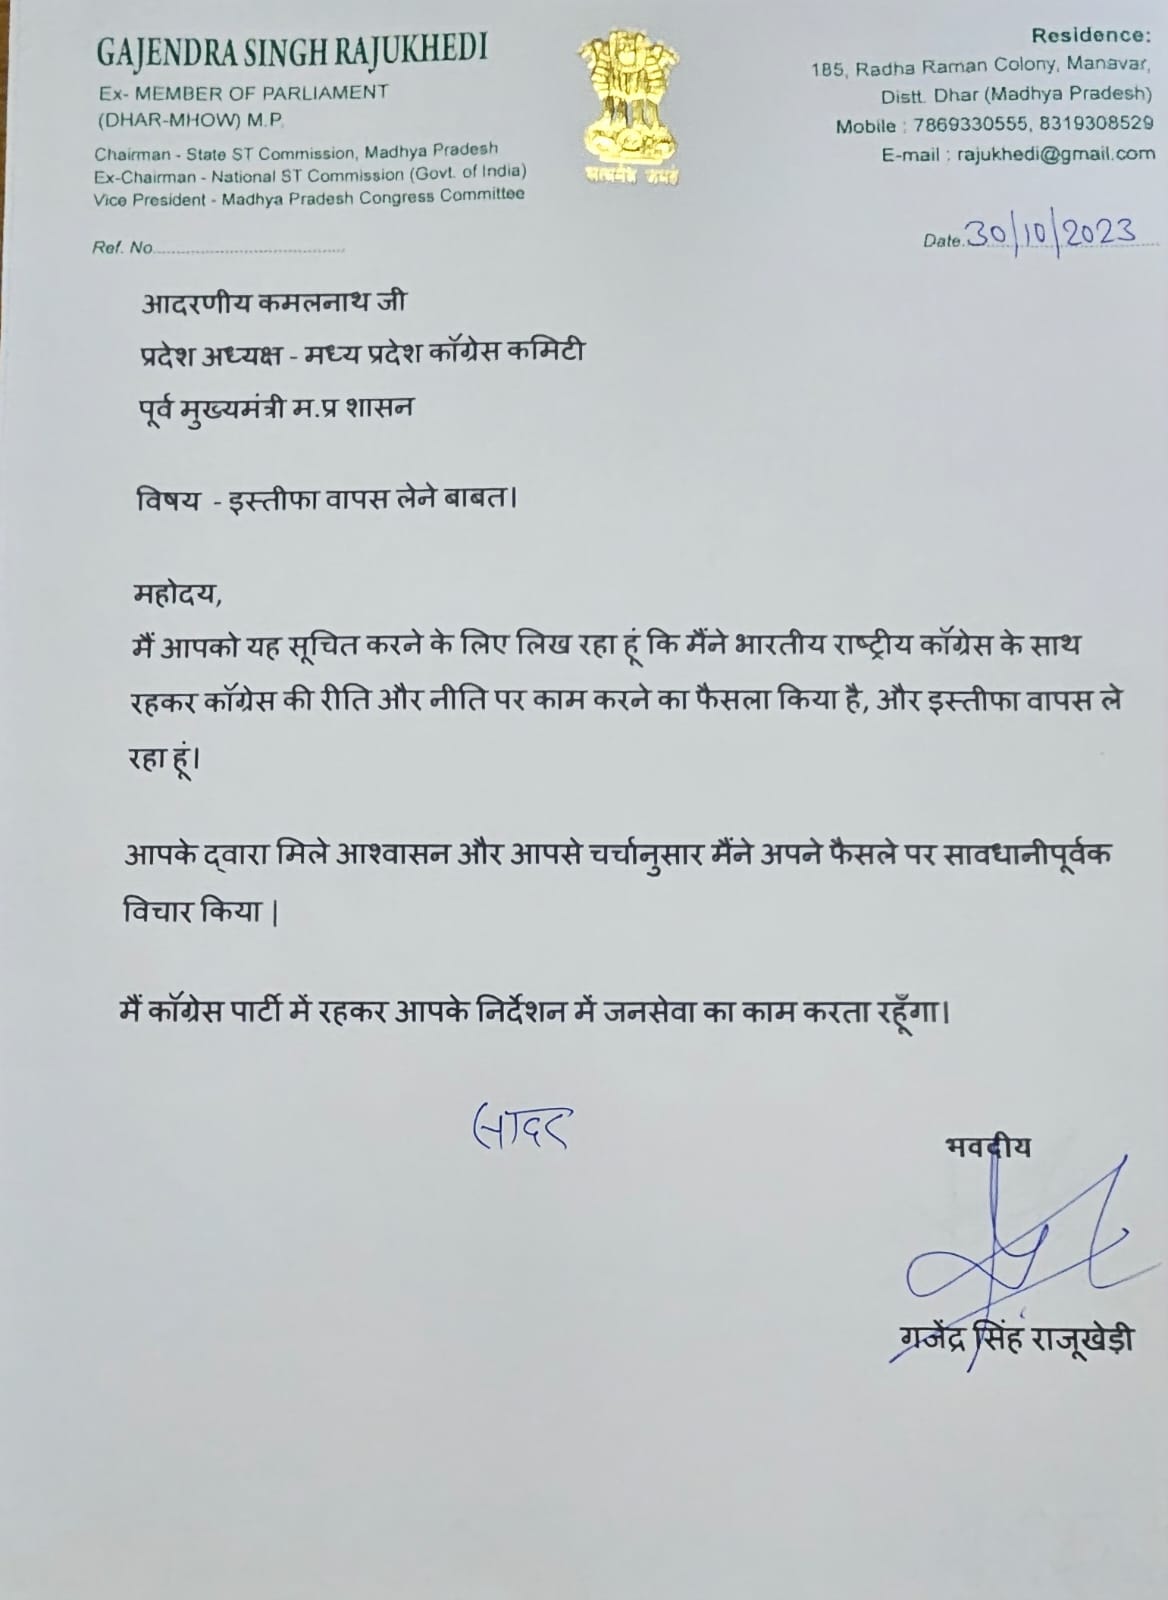 GAJENDRA SINGH RAJUKHEDI
Ex- MEMBER OF PARLIAMENT
(DHAR-MHOW) M.P.
Chairman - State ST Commission, Madhya Pradesh
Ex-Chairman - National ST Commission (Govt. of India)
Vice President - Madhya Pradesh Congress Committee
सत्यमेव जयते
Residence:
185, Radha Raman Colony, Manavar,
Distt. Dhar (Madhya Pradesh)
Mobile : 7869330555, 8319308529
E-mail : rajukhedi@gmail.com
Ref. No.
Date.30/10/2023
आदरणीय कमलनाथ जी
प्रदेश अध्यक्ष - मध्य प्रदेश कॉंग्रेस कमिटी
पूर्व मुख्यमंत्री म.प्र शासन
विषय - इस्तीफा वापस लेने बाबत।
महोदय,
मैं आपको यह सूचित करने के लिए लिख रहा हूं कि मैंने भारतीय राष्ट्रीय कॉंग्रेस के साथ
रहकर कॉंग्रेस की रीति और नीति पर काम करने का फैसला किया है, और इस्तीफा वापस ले
रहा हूं।
आपके द्वारा मिले आश्वासन और आपसे चर्चानुसार मैंने अपने फैसले पर सावधानीपूर्वक
विचार किया |
मैं कॉंग्रेस पार्टी में रहकर आपके निर्देशन में जनसेवा का काम करता रहूँगा।
सादर
भवदीय
गजेंद्र सिंह राजूखेड़ी